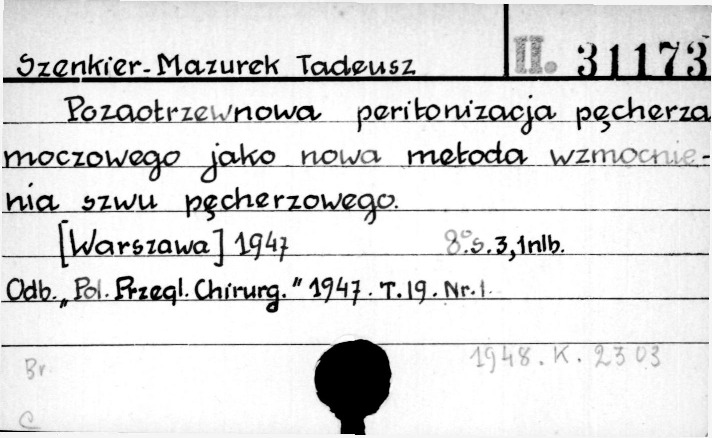 Szenkier-Mazurek Tadeusz II. 31173
Pozaotrzewnowa peritonizacja pęcherza
moczowego jako nowa metoda wzmocnie-
nia szwu pęcherzowego.
[Warszawa] 1947 8° s. 3, 1nlb.
Odb. „Pol. Przegl. Chirurg." 1947. T. 19. Nr. 1.
1948. K. 2303
Br
C